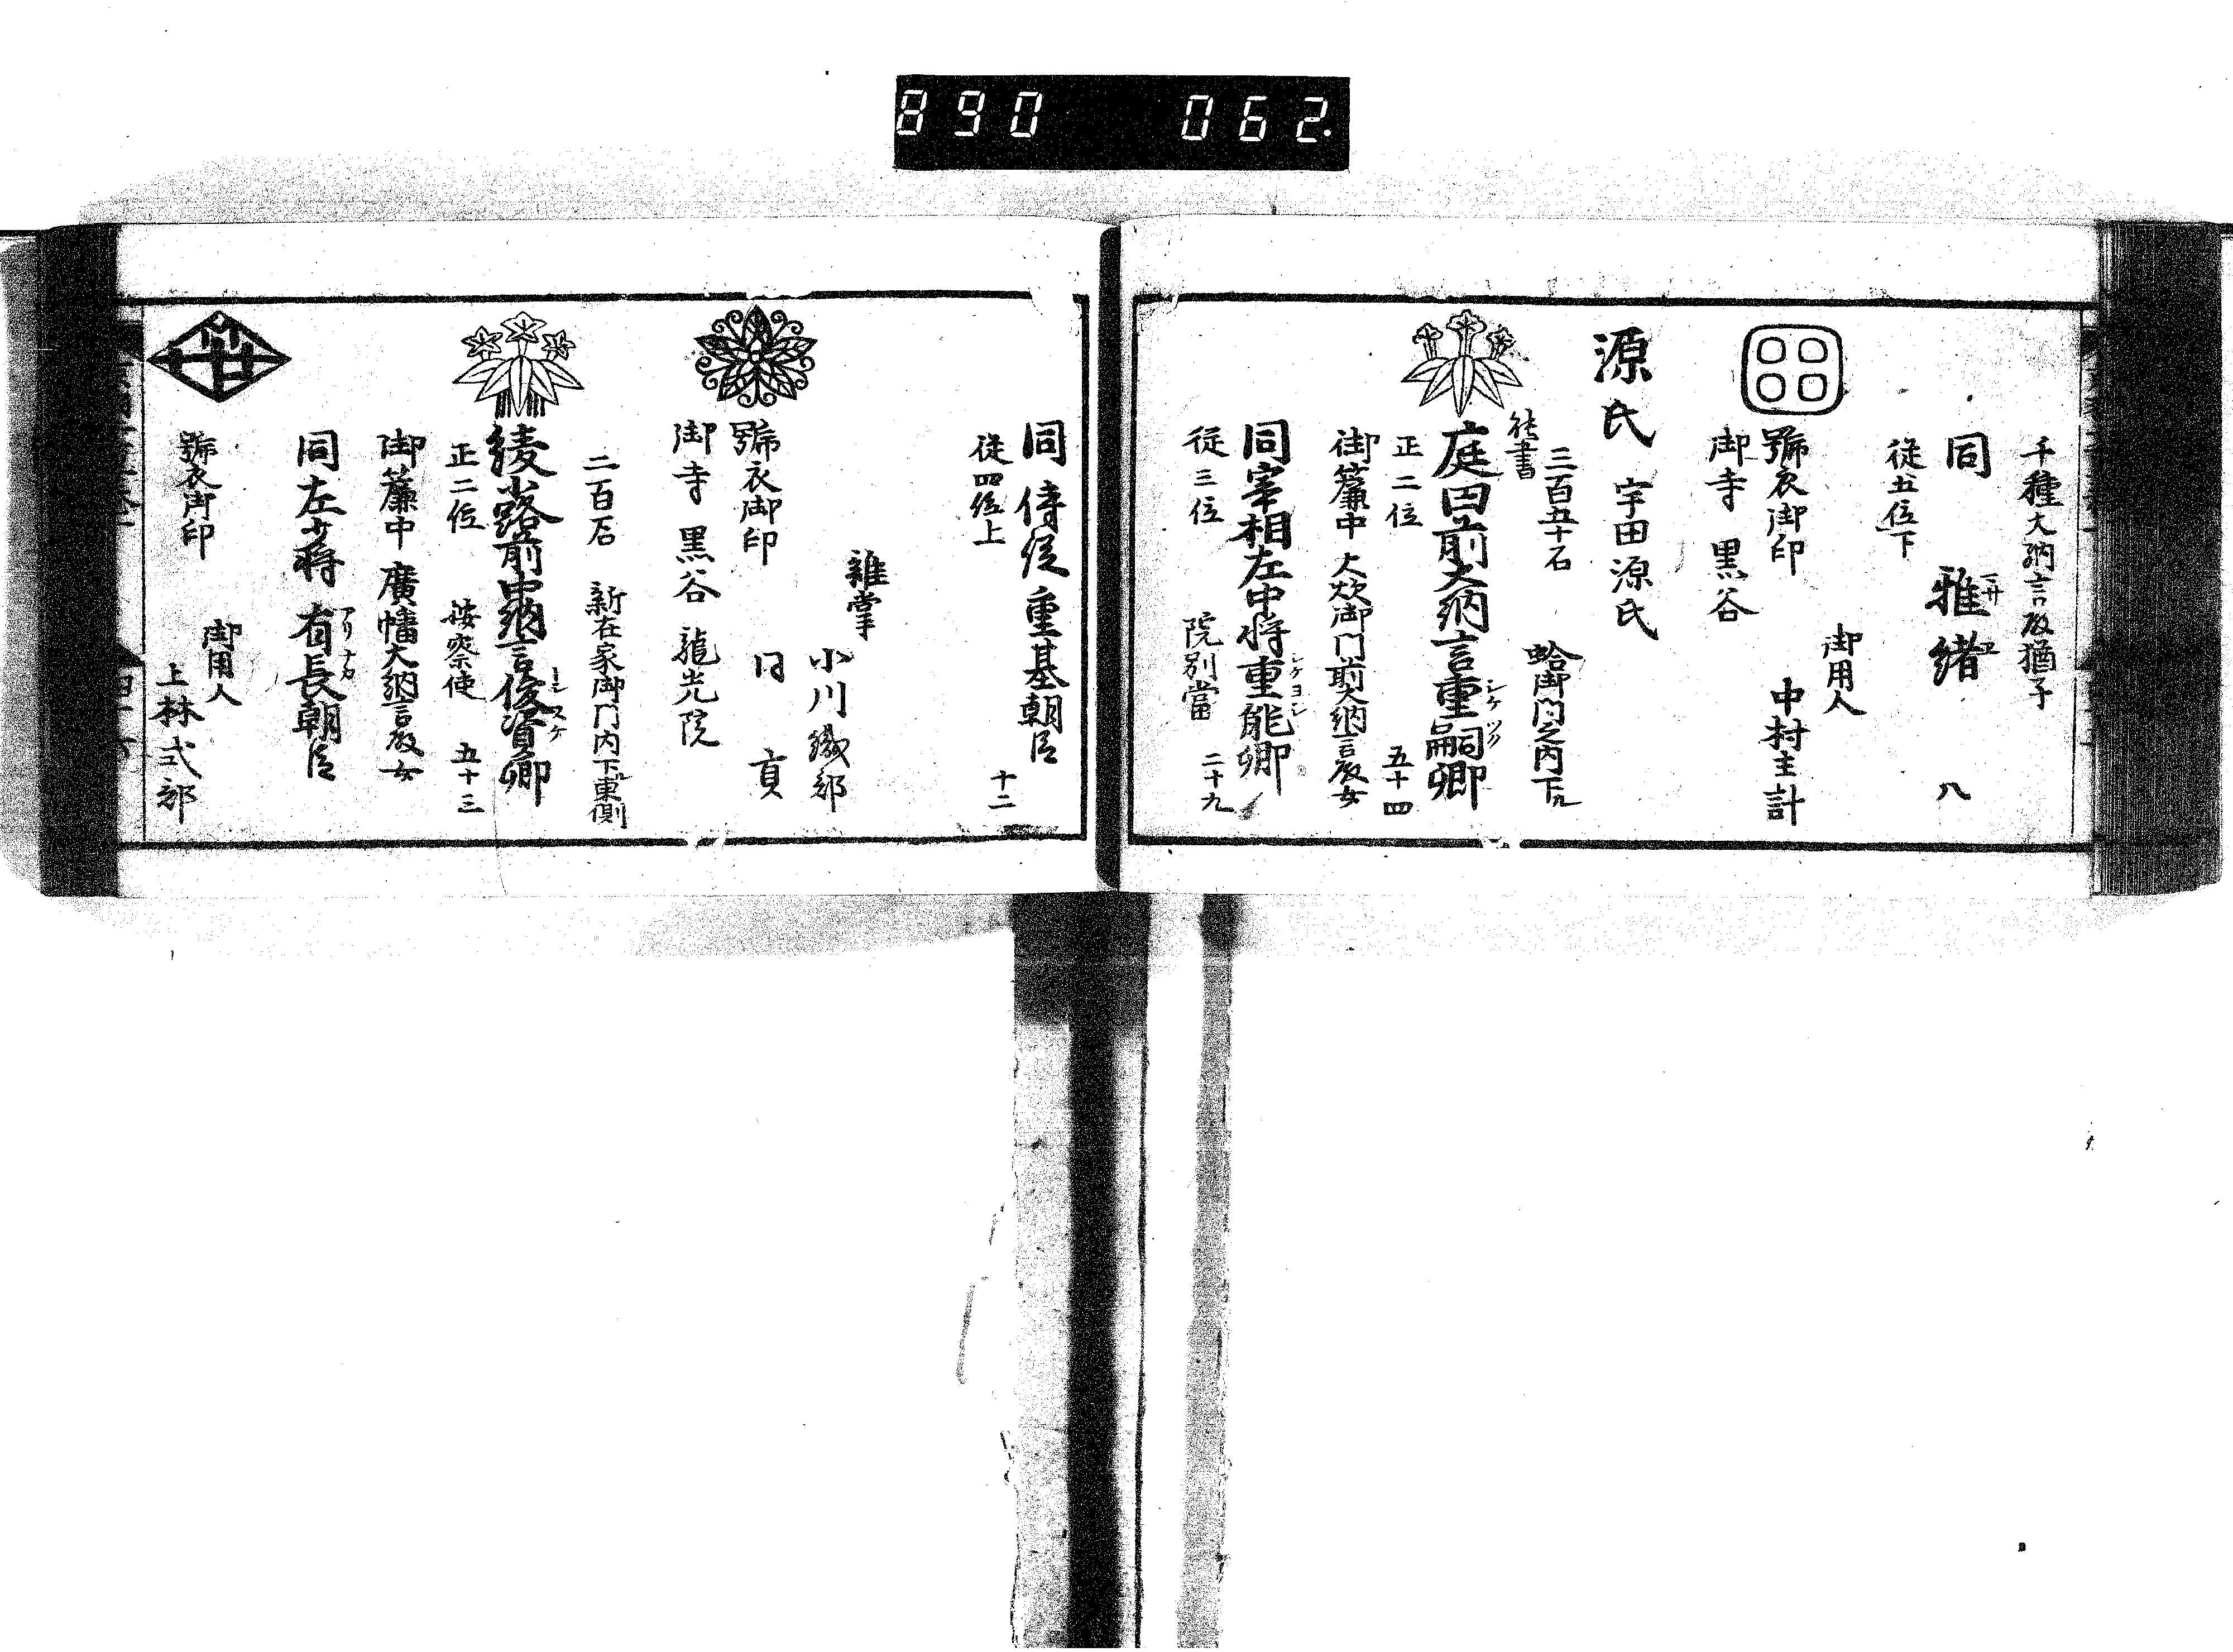 890 062.
千種大納言殿猶子
同 雅緒 八
従五位下
御用人
中村主計
號衣御印
御寺 黒谷
源氏 宇田源氏
三百五十石 蛤御門之内下ル
能書
庭田前大納言重嗣卿 シケツク
正二位 五十四
御簾中 大炊御門前大納言殿女
同宰相左中将重能卿 シケヨシ
従三位 院別當 二十九
同侍従重基朝臣
従四位上 十二
雑掌
小川織部
同
號衣御印
御寺 黒谷 龍光院
二百石 新在家御門内下東側
綾小路前中納言俊資卿
正二位 按察使 五十三
御簾中 廣幡大納言殿女
同左少将 有長朝臣 アリナカ
御用人
上林式部
號衣御印